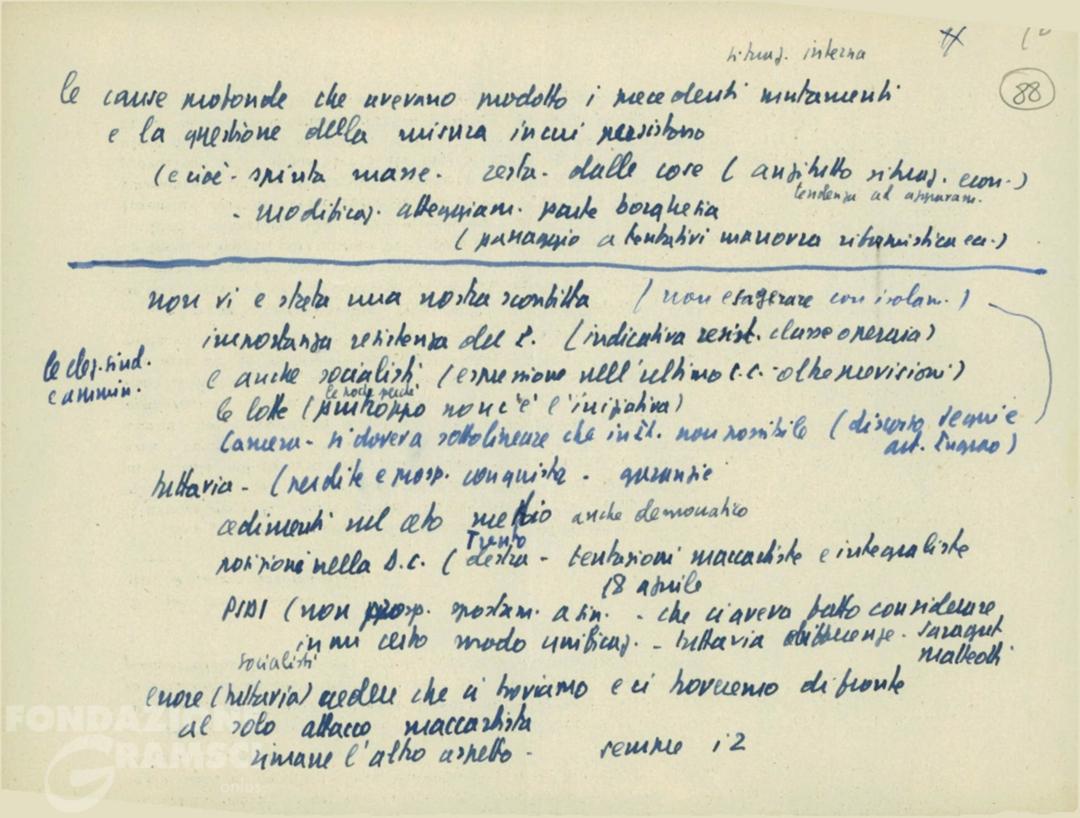 situaz. interna
88
le cause profonde che avevano prodotto i precedenti mutamenti
e la questione della misura in cui persistono
(e cioè - spinta masse - resta - dalle cose (anzitutto situaz. econ.)
tendenza ad
- modificaz. atteggiam. parte borghesia
(passaggio a tentativi manovra riformistica ecc.)
non vi è stata una nostra sconfitta (non esagerare con isolam.)
importanza resistenza del P. (indicativa resist. classe operaia)
le elez. sind.
e ammin.
e anche socialisti (espressione nell'ultimo C.C. - oltre previsioni)
le lotte (purtroppo non c'è l'iniziativa)
Camera - si doveva sottolineare che in It. non possibile (discorso segni e
art. Ingrao)
tuttavia - (perdite e prosp. conquista - garanzie
cedimenti nel ceto medio anche democratico
Trento
posizioni nella D.C. (destra - tentazioni maccartiste e integraliste
18 aprile
PSDI (non prosp. spostam. a sin. - che ci aveva fatto considerare
in un certo modo unificaz. - tuttavia differenze - Saragat
Matteotti
socialisti
errore (tuttavia) credere che ci troviamo e ci troveremo di fronte
al solo attacco maccartista
rimane l'altro aspetto - sempre i 2
FONDAZIONE
GRAMSCI
onlus